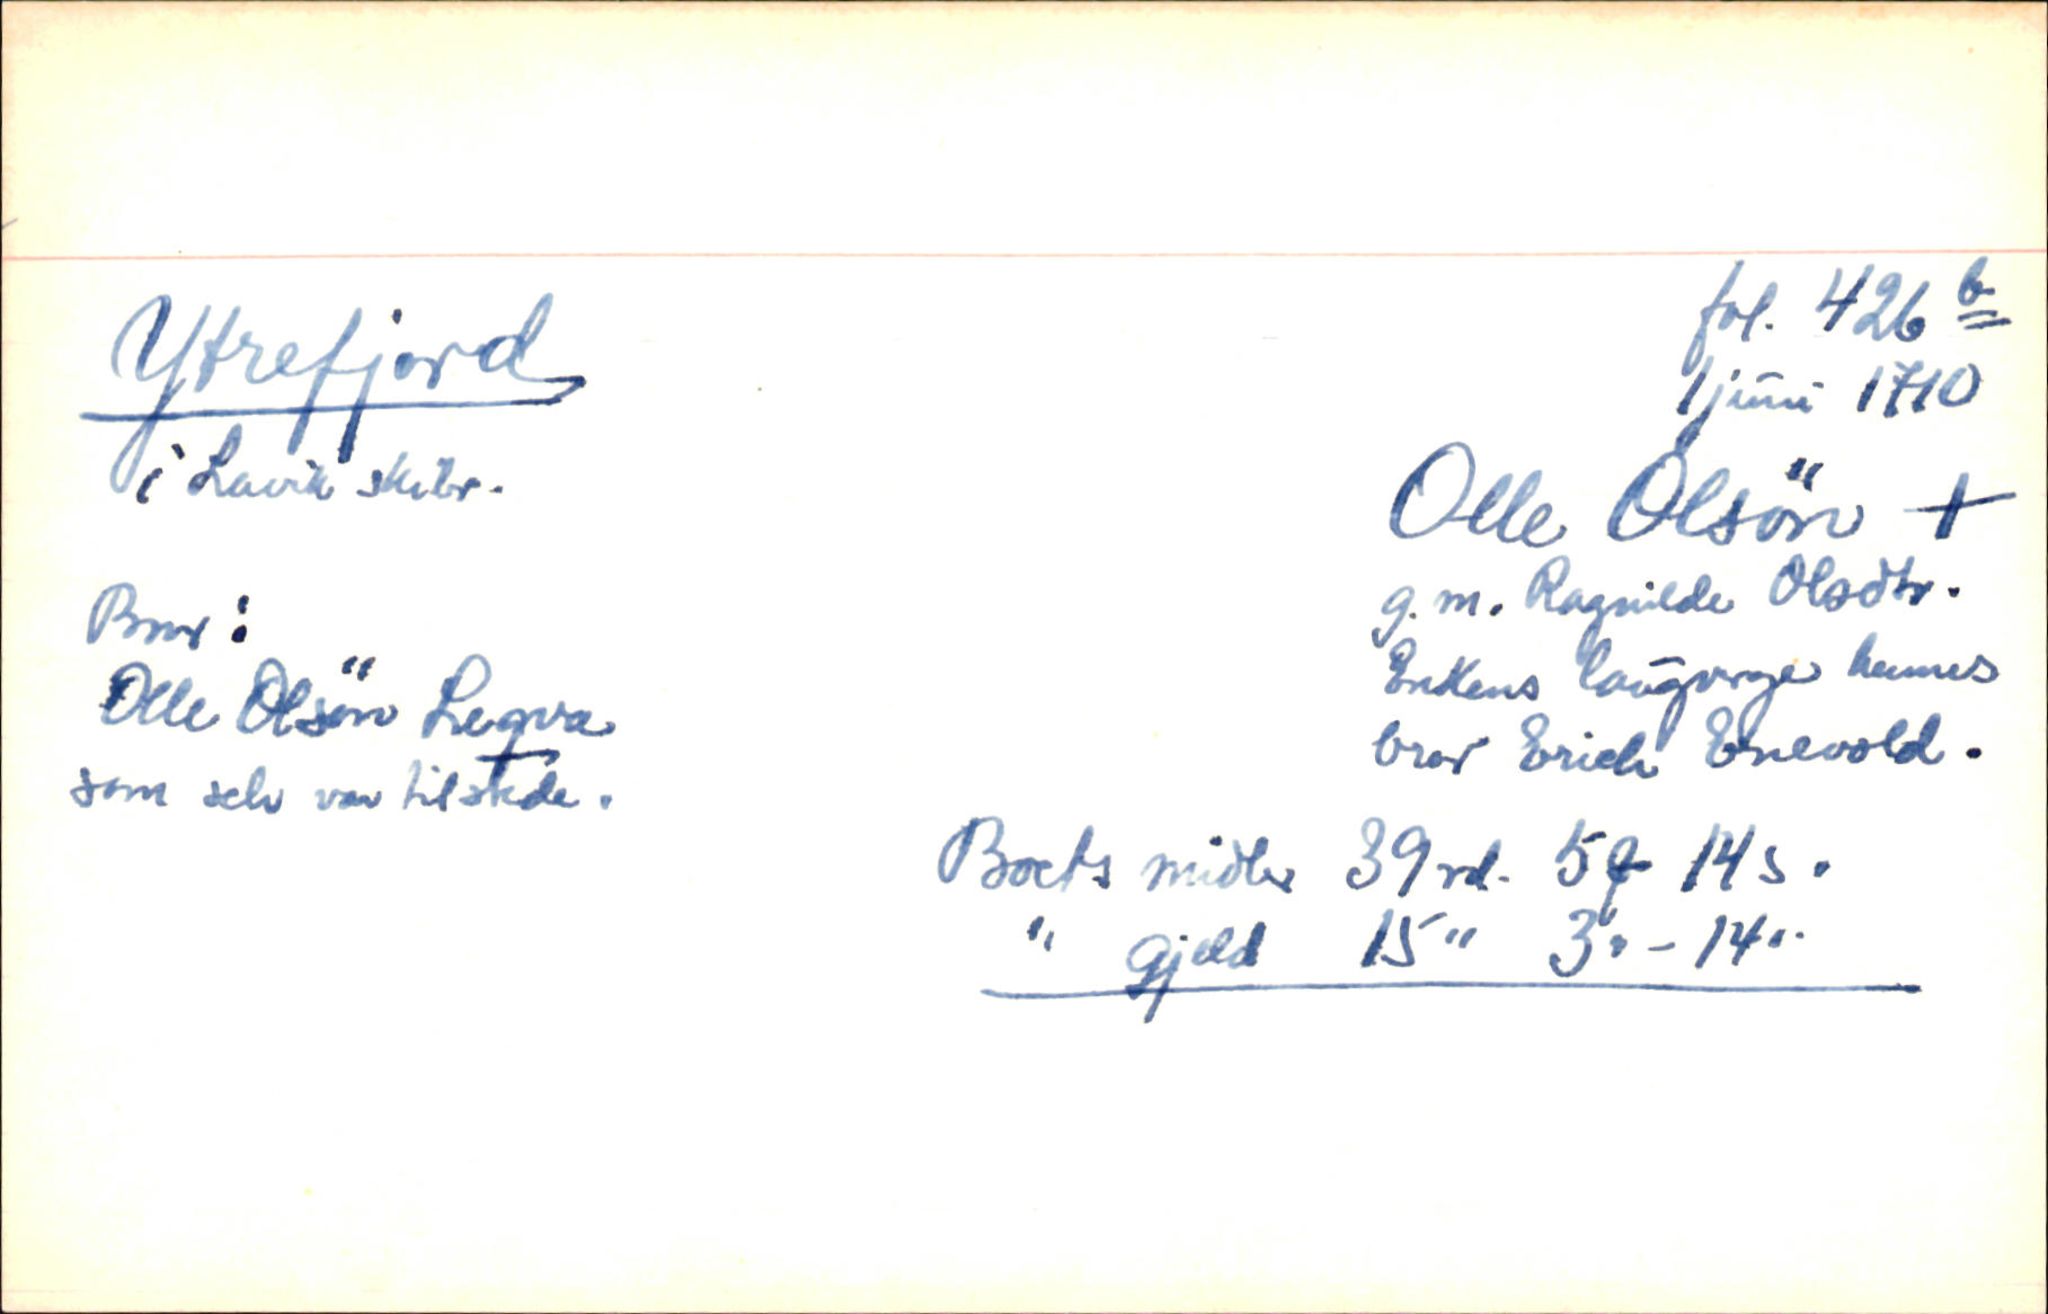 Ytrefjord
i Lavik skibr.
fol. 426 b
1 juni 1710
Olle Olsön +
g.m. Ragnilde Olsdtr.
Enkens laugverge hennes
bror Erich Enevold.
Bror:
Olle Olsön Leqva
som selv var tilstede.
Boets midler 39 rd. 5 ꝗ 14 s.
" gjeld 15 " 3 " - 14 "